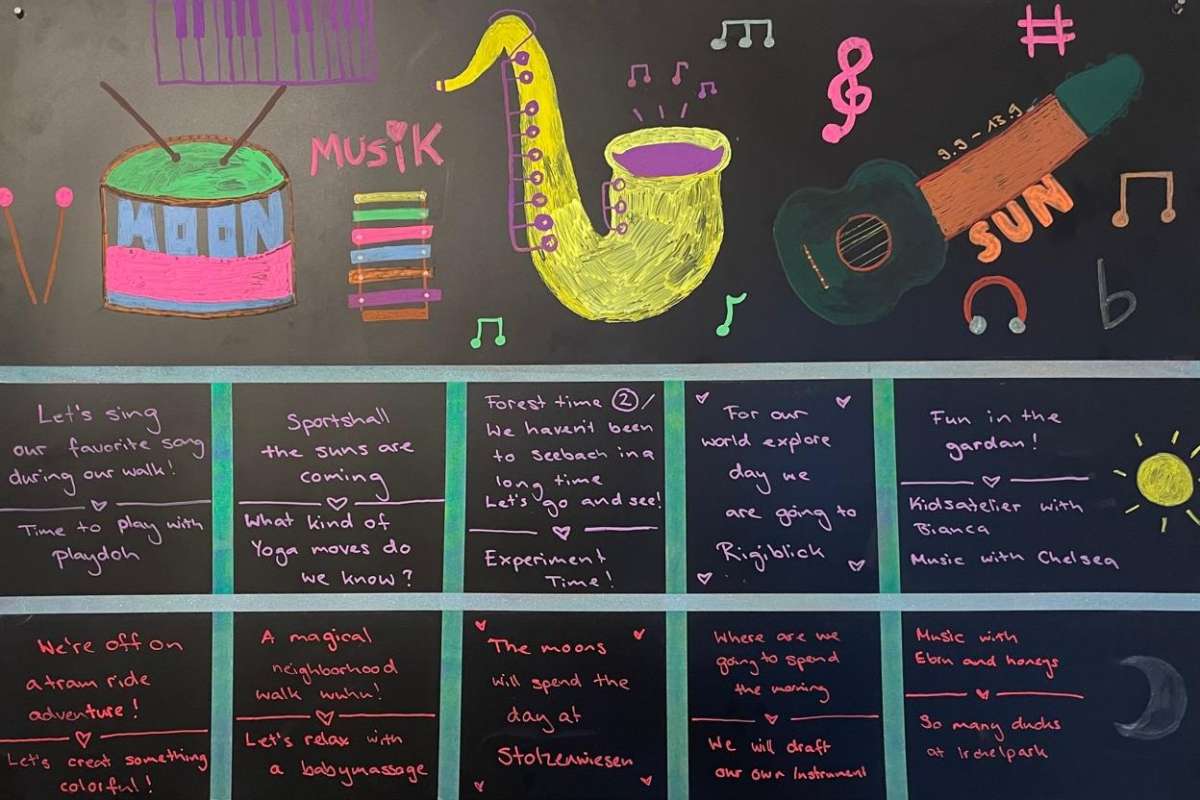 MUSiK
MOON
9.9 - 13.9
SUN
Let's sing
our favorite song
during our walk!
Time to play with
playdoh
Sportshall
the suns are
coming
What kind of
Yoga moves do
we know?
Forest time ② /
We haven't been
to Seebach in a
long time
Let's go and see!
Experiment
Time!
For our
world explore
day we
are going to
Rigiblick
Fun in the
gardan!
Kidsatelier with
Bianca
Music with Chelsea
We're off on
a tram ride
adventure!
Let's creat something
colorful!
A magical
neighborhood
walk wuhu!
Let's relax with
a babymassage
The moons
will spend the
day at
Stolzenwiesen
Where are we
going to spend
the morning
We will draft
our own Instrument
Music with
Ebru and honeys
So many ducks
at Irchelpark